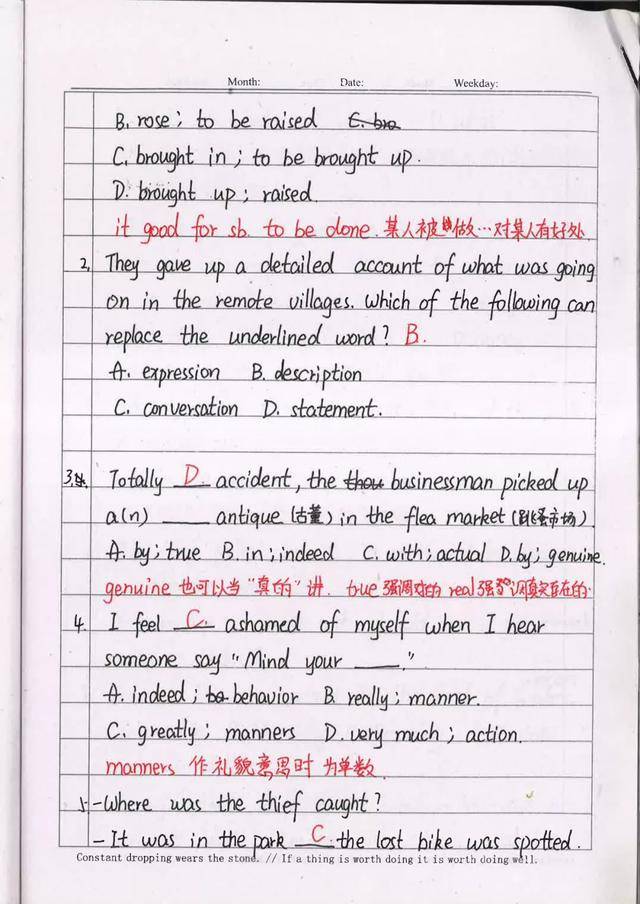 Month: Date: Weekday:
B. rose; to be raised
C. brought in; to be brought up.
D. brought up; raised.
it good for sb. to be done. 某人被做…对某人有好处
2. They gave up a detailed account of what was going
on in the remote villages. Which of the following can
replace the underlined word? B.
A. expression B. description
C. conversation D. statement.
3. Totally D. accident, the businessman picked up
a(n) ____ antique (古董) in the flea market (跳蚤市场).
A. by; true B. in; indeed C. with; actual D. by; genuine.
genuine 也可以当“真的”讲. true 强调对的 real 强调真实存在的.
4. I feel C. ashamed of myself when I hear
someone say "Mind your ____."
A. indeed; behavior B. really; manner.
C. greatly; manners D. very much; action.
manners 作礼貌意思时 为单数.
5. -Where was the thief caught?
-It was in the park C. the lost bike was spotted.
Constant dropping wears the stone. // If a thing is worth doing it is worth doing well.